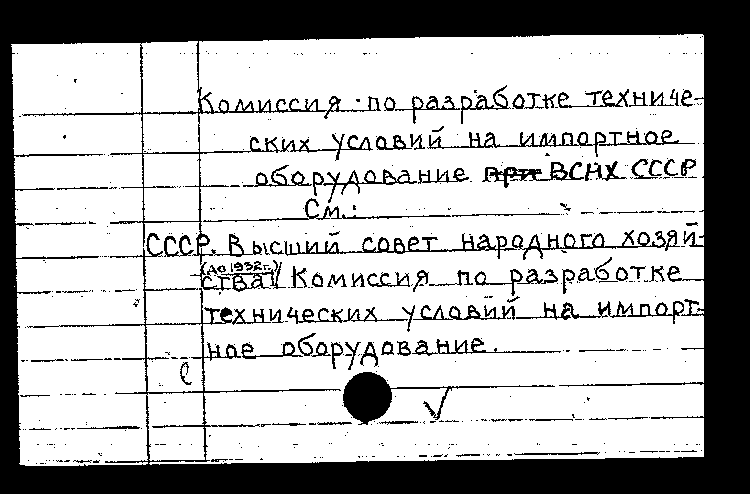 Комиссия по разработке техниче-
ских условий на импортное
оборудование при ВСНХ СССР
См.:
СССР. Высший совет народного хозяй-
(до 1932г.)
ства. Комиссия по разработке
технических условий на импорт-
ное оборудование.